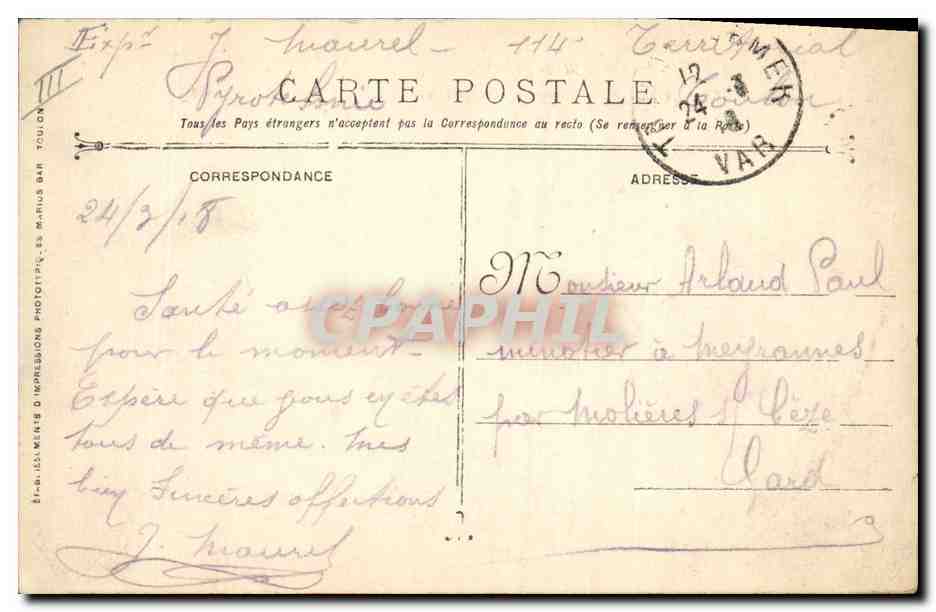 Expr J. Maurel - 114e Territorial
III
CARTE POSTALE
Pyrotechnie Toulon
Tous les Pays étrangers n'acceptent pas la Correspondance au recto (Se renseigner à la Poste)
12
24 -3
MER
VAR
CORRESPONDANCE
ADRESSE
24/3/18
Santé assez bonne
pour le moment -
Espère que vous en êtes
tous de même. Mes
bien sincères affections
J. Maurel
Monsieur Arlaud Paul
minotier à Meyrannes
par Molières s/ Cèze
Gard
ETABLISSEMENTS D'IMPRESSIONS PHOTOTYPIQUES MARIUS BAR TOULON
CPAPHIL